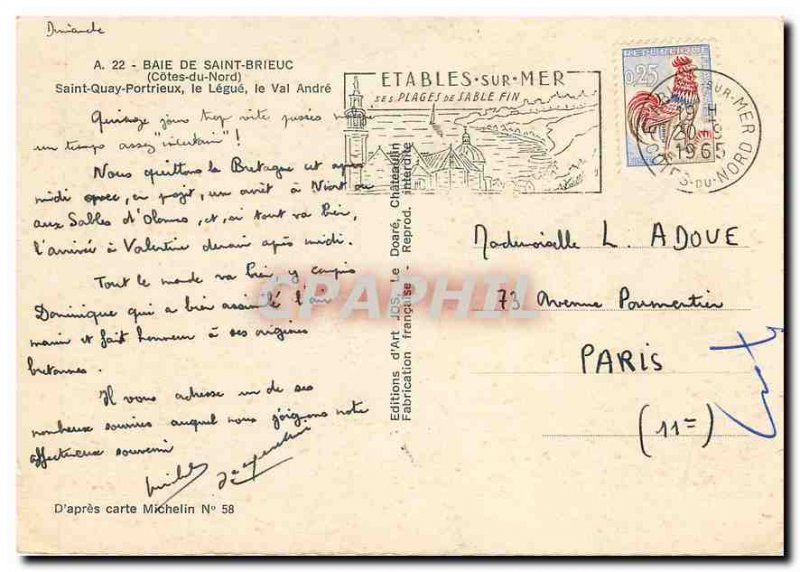 Dimanche
A. 22 - BAIE DE SAINT-BRIEUC
(Côtes-du-Nord)
Saint-Quay-Portrieux, le Légué, le Val André
Quinze jours trop vite passés
un temps assez volontain"!
Nous quittons la Bretagne cet après
midi avec, en projet, un arrêt à Niort ou
aux Sables d'Olonne, et, si tout va bien,
l'arrivée à Valentine demain après midi.
Tout le monde va bien y compris
Dominique qui a bien assimilé l'air
marin et fait honneur à ses origines
bretonnes.
Il vous adresse un de ses
nombreux sourires auquel nous joignons notre
affectueux souvenir
D'après carte Michelin N° 58
Editions d'Art JOS, Le Doaré, Châteaulin
Fabrication française - Reprod. interdite
ETABLES-SUR-MER
SES PLAGES DE SABLE FIN
REPUBLIQUE
0,25
SUR-MER
19 H
20-9
1965
COTES-DU-NORD
Mademoiselle L. ADOUE
73 Avenue Parmentier
PARIS
(11=)
CPAPHIL